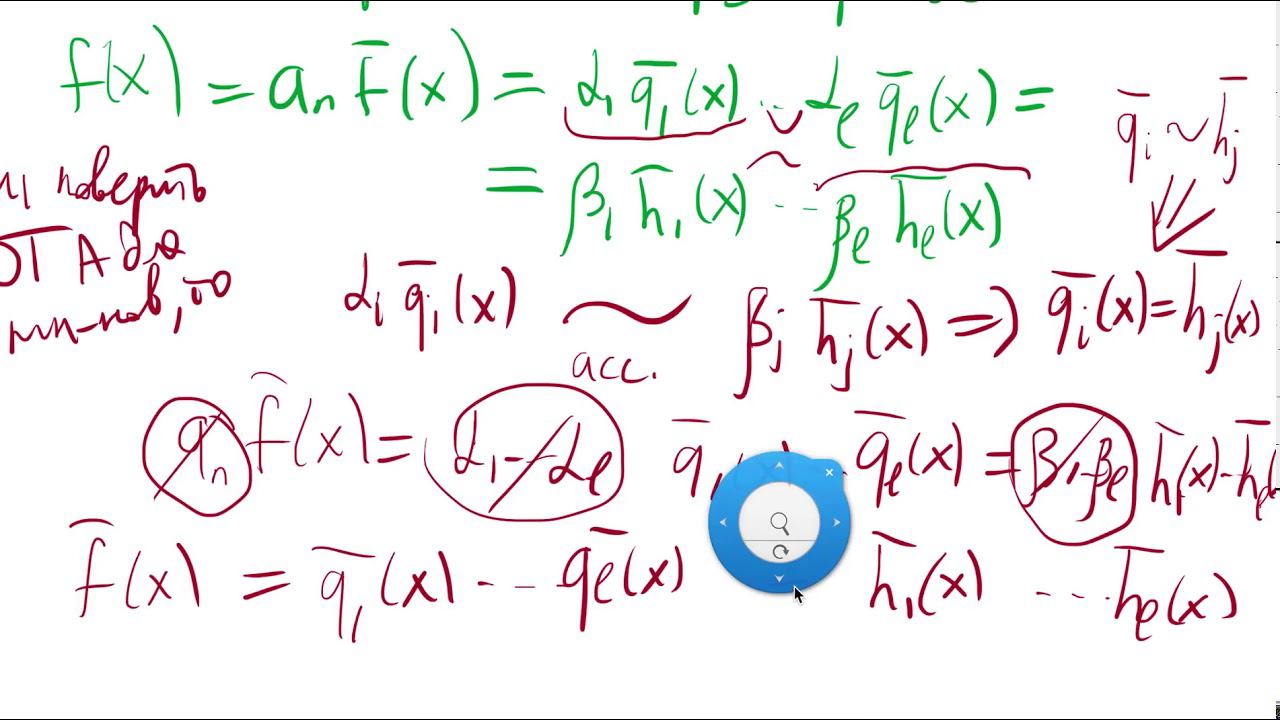 f(x) = aₙ f̄(x) = α₁ q̄₁(x) ... αₑ q̄ₑ(x) =
= β₁ h̄₁(x) ... βₑ h̄ₑ(x)
q̄ᵢ ~ h̄ⱼ
поверить
ОТА для
мн-нов, то
α₁ q̄₁(x) ~ βⱼ h̄ⱼ(x) => q̄ᵢ(x) = h̄ⱼ(x)
acc.
aₙ f̄(x) = α₁ - αₑ q̄₁ q̄ₑ(x) = β₁ - βₑ h̄₁(x) - h̄ₑ
f̄(x) = q̄₁(x) ... q̄ₑ(x) h̄₁(x) ... h̄ₑ(x)